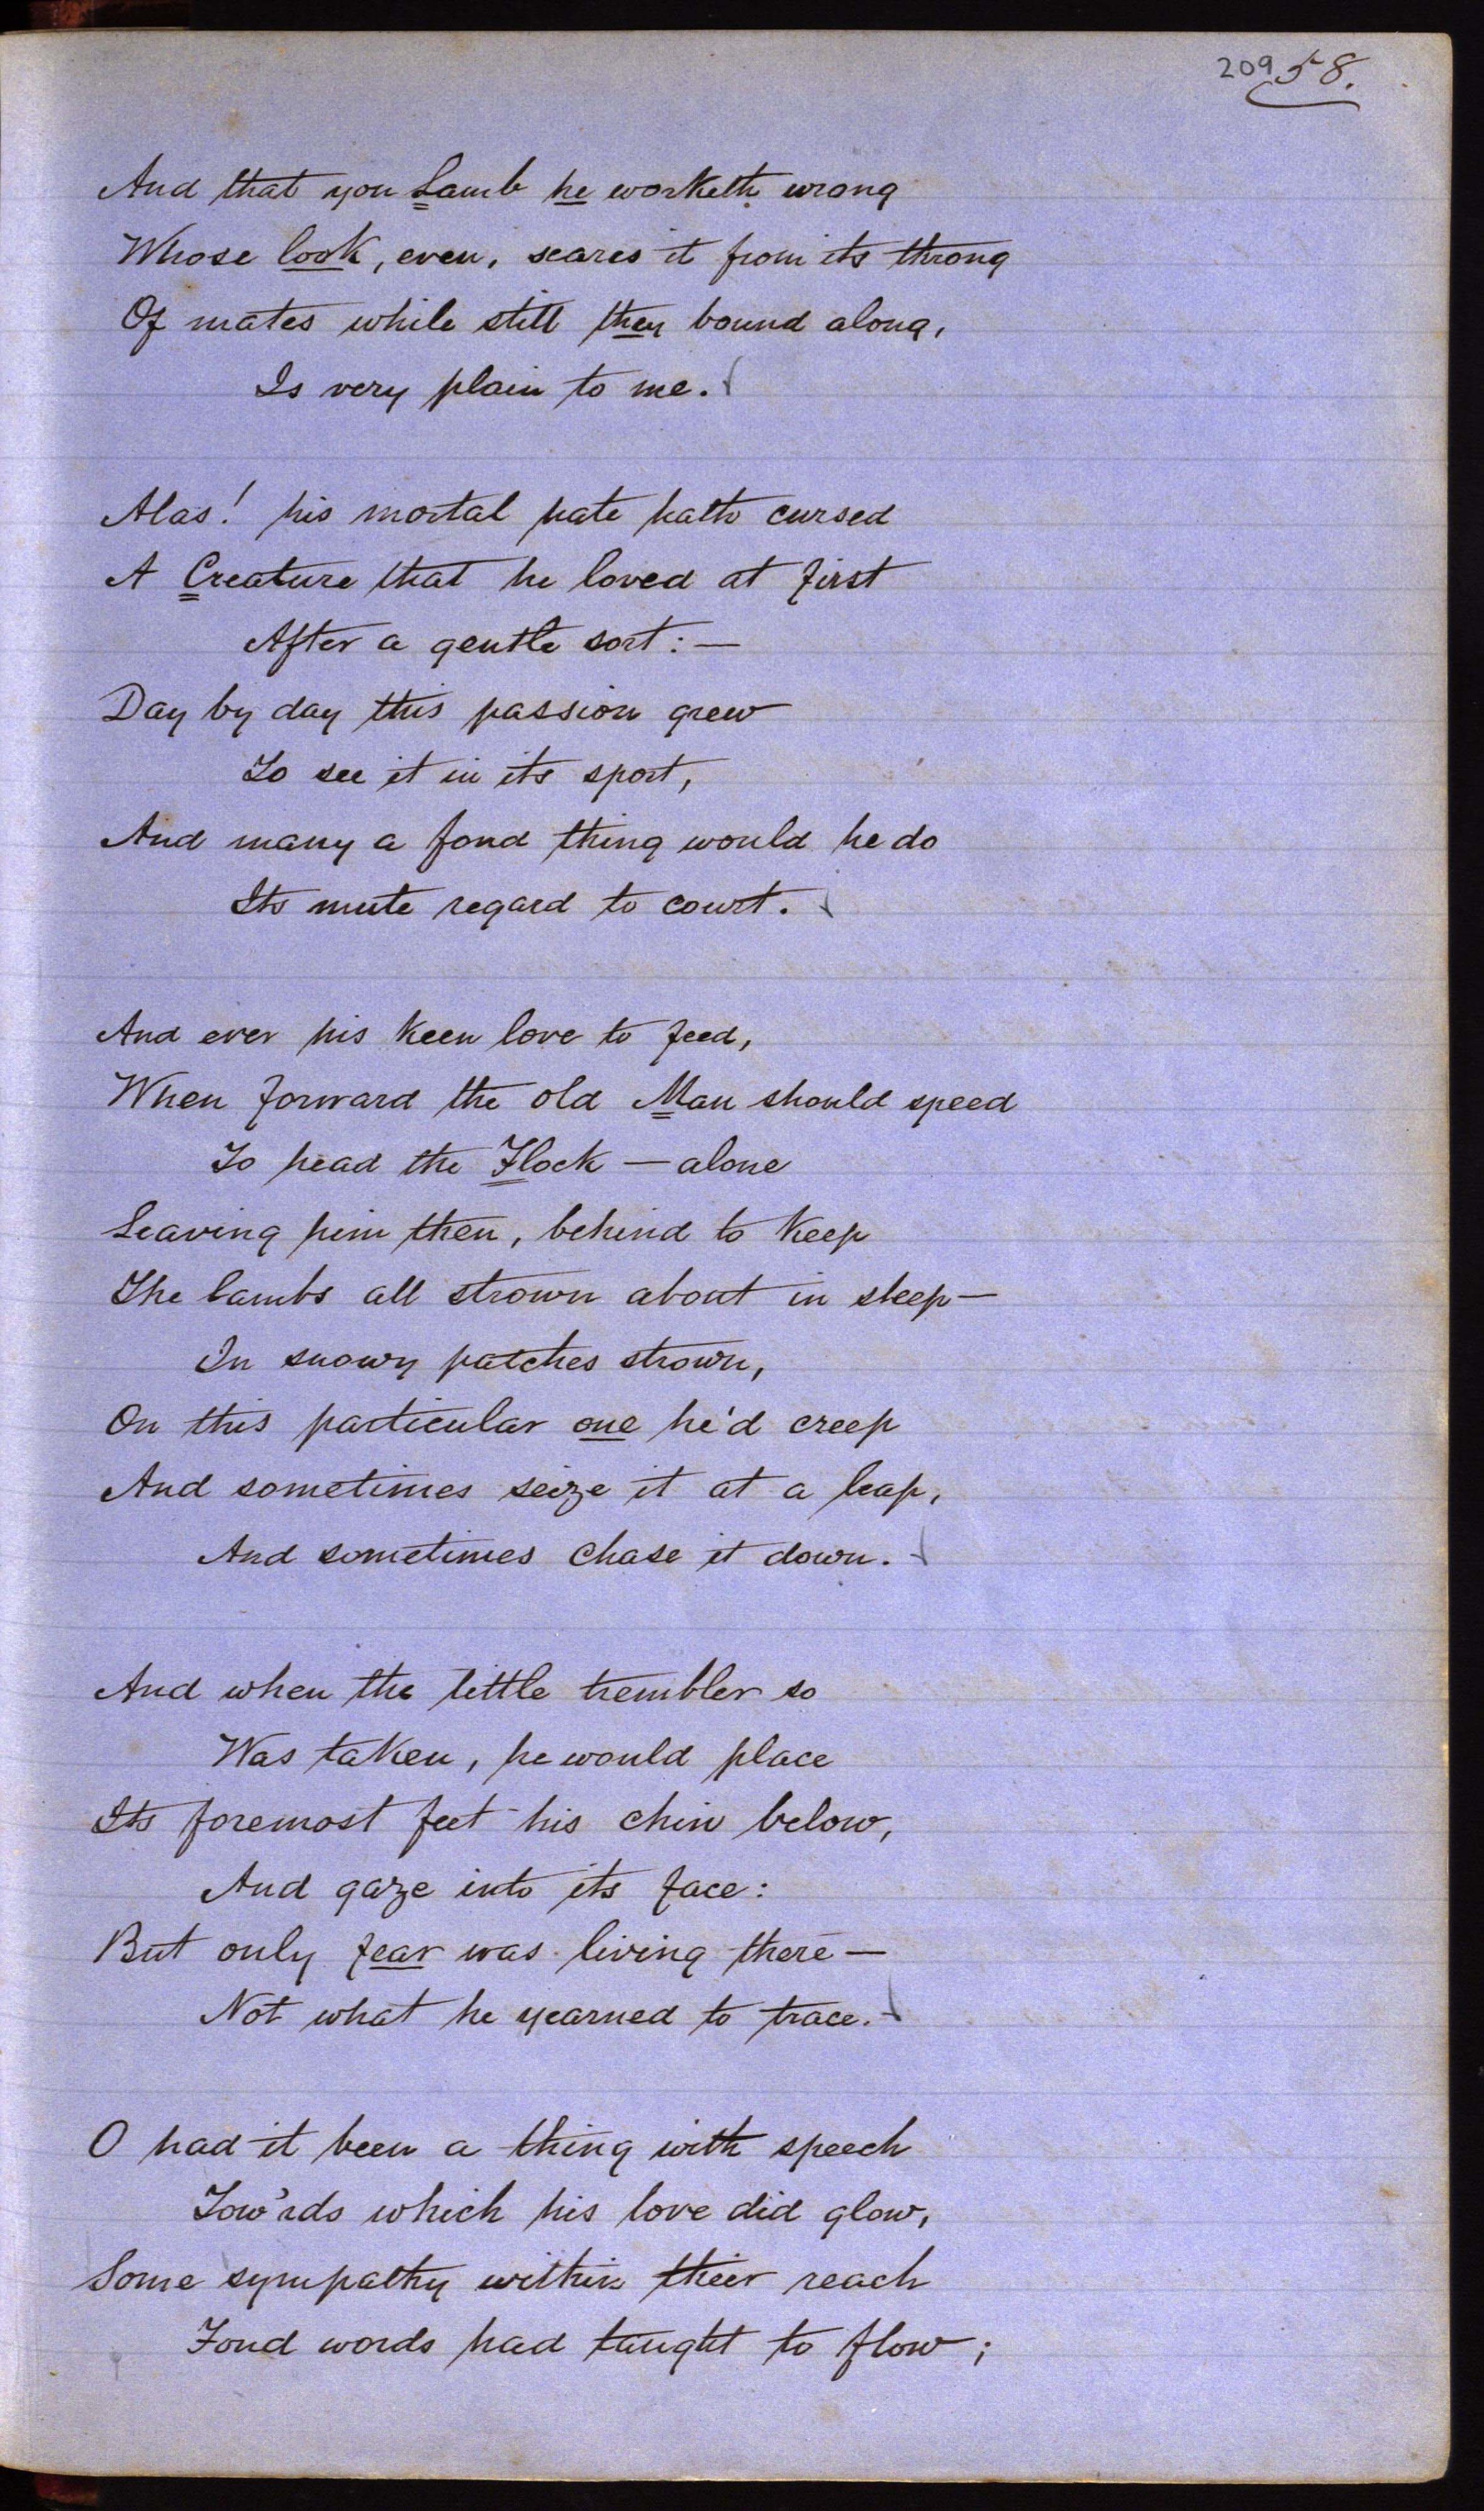 209 58.
And that you Lamb he worketh wrong
Whose look, even, scares it from its throng
Of mates while still they bound along,
Is very plain to me.
Alas! his mortal hate hath cursed
A Creature that he loved at first
After a gentle sort:—
Day by day this passion grew
To see it in its sport,
And many a fond thing would he do
Its mute regard to court.
And ever his keen love to feed,
When forward the old Man should speed
To head the Flock — alone
Leaving him then, behind to keep
The lambs all strown about in sleep—
In snowy patches strown,
On this particular one he'd creep
And sometimes seize it at a leap,
And sometimes chase it down.
And when the little trembler so
Was taken, he would place
Its foremost feet his chin below,
And gaze into its face:
But only fear was living there—
Not what he yearned to trace.
O had it been a thing with speech
Tow'rds which his love did glow,
Some sympathy within their reach
Fond words had taught to flow;